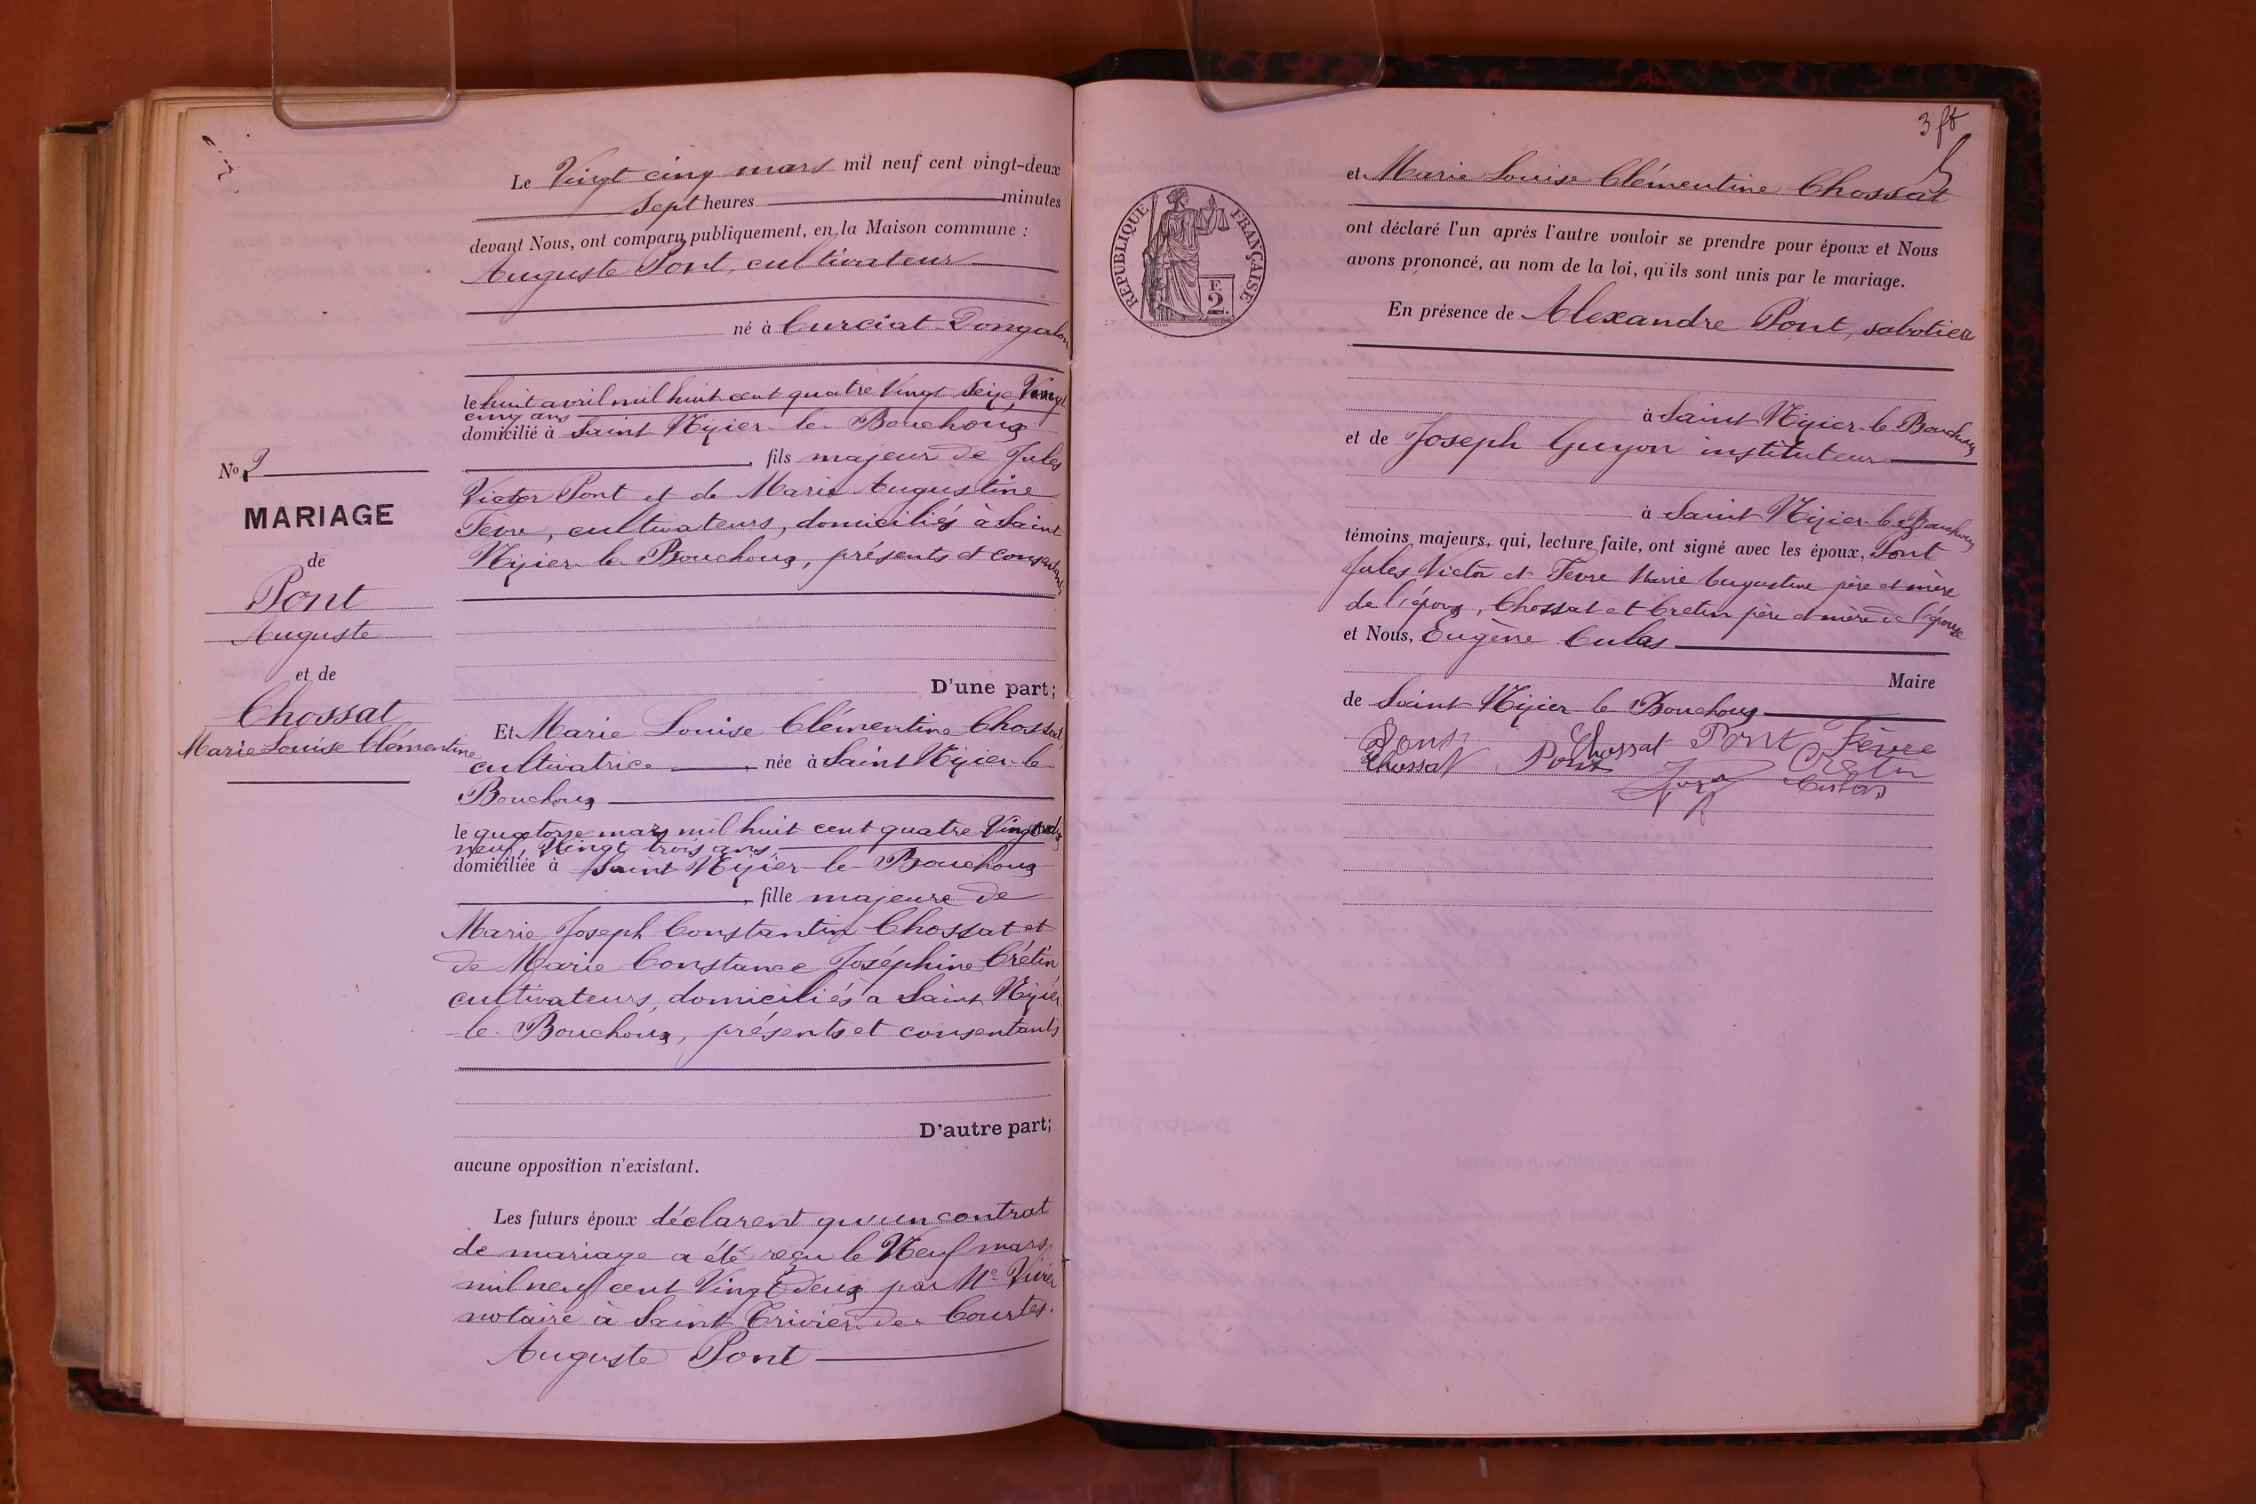 Le Vingt cinq mars mil neuf cent vingt-deux
sept heures minutes
devant Nous, ont comparu publiquement, en la Maison commune :
Auguste Pont, cultivateur
né à Curciat-Dongalon
le huit avril mil huit cent quatre Vingt Seize, Vingt
cinq ans
domicilié à Saint Nizier-le-Bouchoux
, fils majeur de Jules
Victor Pont et de Marie Augustine
Fevre, cultivateurs, domiciliés à Saint
Nizier-le-Bouchoux, présents et consentants
D'une part;
No 2
MARIAGE
de
Pont
Auguste
et de
Chossat
Marie Louise Clémentine
Et Marie Louise Clémentine Chossat,
cultivatrice, née à Saint Nizier-le-
Bouchoux
le quatorze mars mil huit cent quatre Vingt dix
neuf, Vingt trois ans,
domiciliée à Saint Nizier-le-Bouchoux
, fille majeure de
Marie Joseph Constantin Chossat et
de Marie Constance Joséphine Crétin,
cultivateurs, domiciliés à Saint Nizier
-le-Bouchoux, présents et consentants
D'autre part;
aucune opposition n'existant.
Les futurs époux déclarent qu'un contrat
de mariage a été reçu le Neuf mars
mil neuf cent Vingt deux par Me
notaire à Saint Trivier-de-Courtes.
Auguste Pont
3 ft
et Marie Louise Clémentine Chossat
ont déclaré l'un après l'autre vouloir se prendre pour époux et Nous
avons prononcé, au nom de la loi, qu'ils sont unis par le mariage.
RÉPUBLIQUE FRANÇAISE
F.
2.
En présence de Alexandre Pont, sabotier
à Saint Nizier-le-Bouchoux
et de Joseph Guyon instituteur
à Saint Nizier-le-Bouchoux
témoins majeurs, qui, lecture faite, ont signé avec les époux, Pont
Jules Victor et Fevre Marie Augustine père et mère
de l'époux, Chossat et Cretin père et mère de l'épouse
et Nous, Eugène Culas
Maire
de Saint Nizier le Bouchoux
Pont Chossat Pont Fèvre
Chossat Pont Cretin
Culas